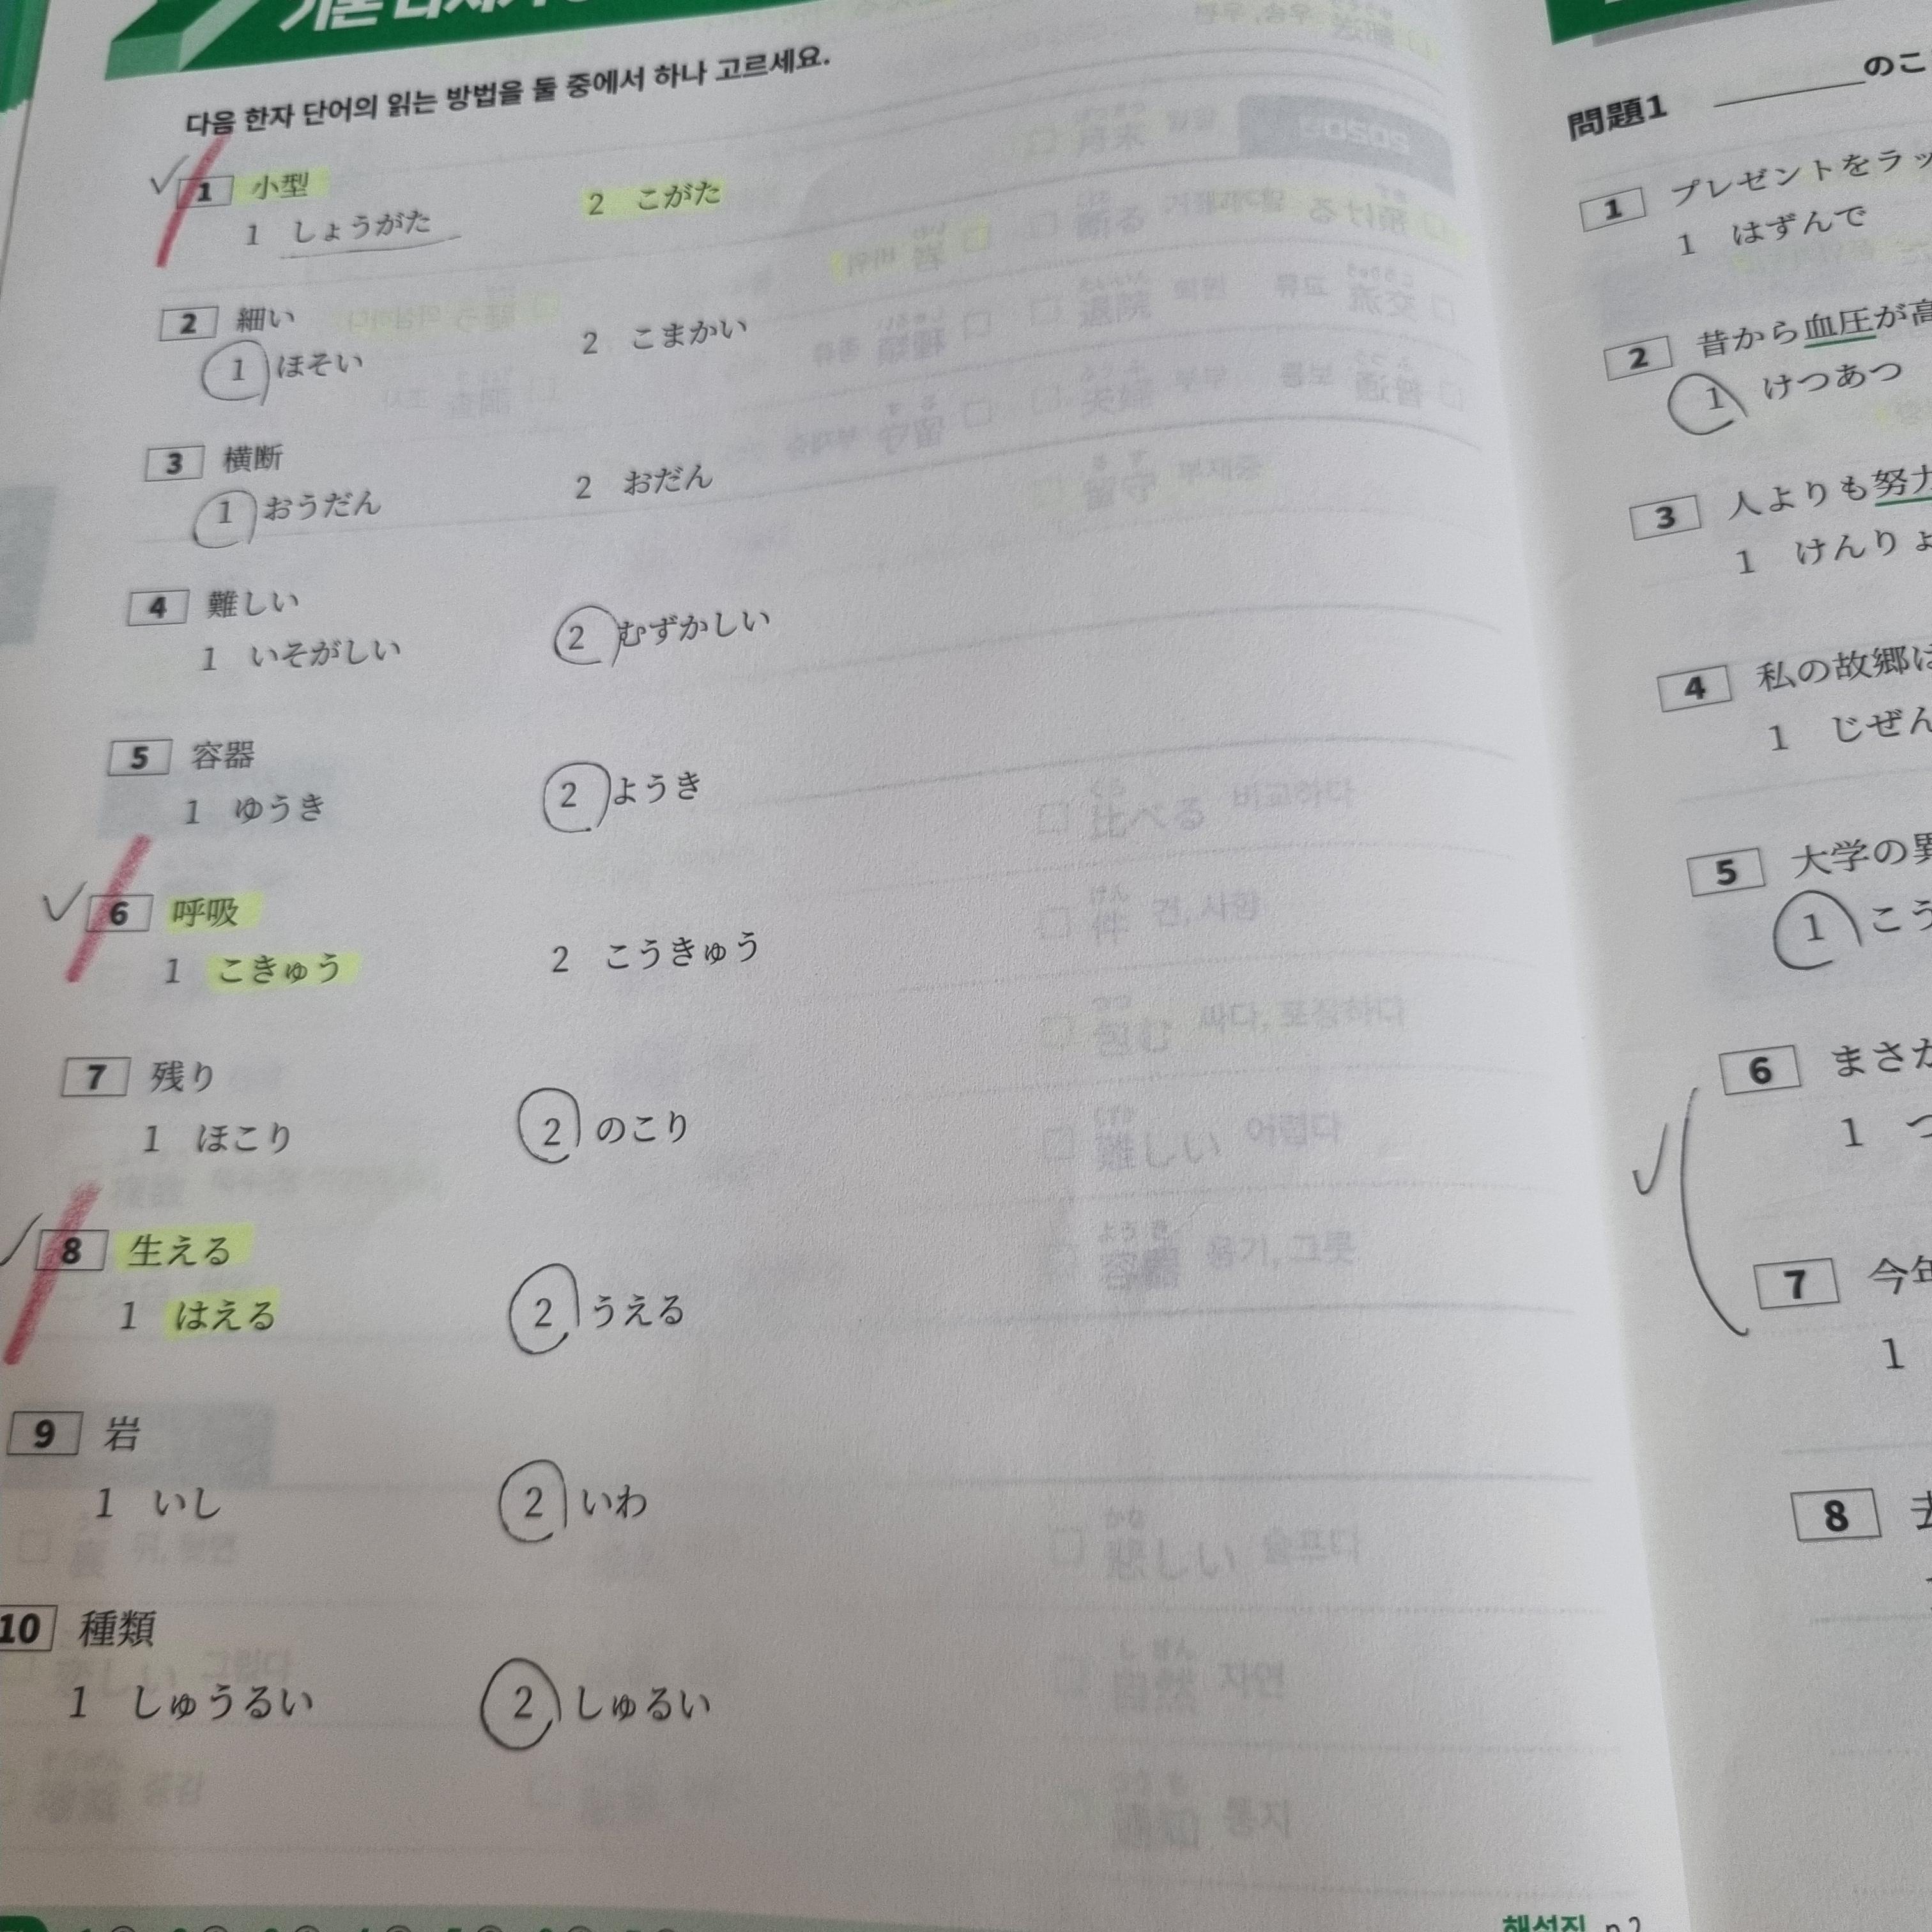 다음 한자 단어의 읽는 방법을 둘 중에서 하나 고르세요.
1 小型
1 しょうがた 2 こがた
2 細い
1 ほそい 2 こまかい
3 横断
1 おうだん 2 おだん
4 難しい
1 いそがしい 2 むずかしい
5 容器
1 ゆうき 2 ようき
6 呼吸
1 こきゅう 2 こうきゅう
7 残り
1 ほこり 2 のこり
8 生える
1 はえる 2 うえる
9 岩
1 いし 2 いわ
10 種類
1 しゅうるい 2 しゅるい
해설집 p.2
問題1 のこ
1 プレゼントをラッ
1 はずんで
2 昔から血圧が高
1 けつあつ
3 人よりも努力
1 けんりょ
4 私の故郷は
1 じぜん
5 大学の異
1 こう
6 まさか
1 つ
7 今年
1
8 去